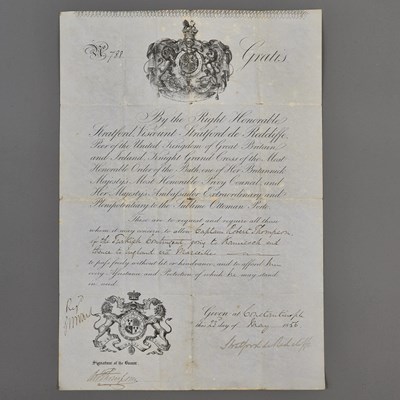 No. 751
Gratis.
By the Right Honorable
Stratford, Viscount Stratford de Redcliffe,
Peer of the United Kingdom of Great Britain
and Ireland, Knight Grand Cross of the Most
Honorable Order of the Bath, one of Her Britannick
Majesty's Most Honorable Privy Council, and
Her Majesty's Ambassador Extraordinary and
Plenipotentiary to the Sublime Ottoman Porte
These are to request and require all those
whom it may concern to allow Captain Robert Thompson
of the Turkish Contingent going to and
thence to England via Marseilles
to pass freely without let or hindrance, and to afford him
every Assistance and Protection of which he may stand
in need.
Given at Constantinople
this 23 day of May 1856
Stratford de Redcliffe
Signature of the Bearer.
Thompson